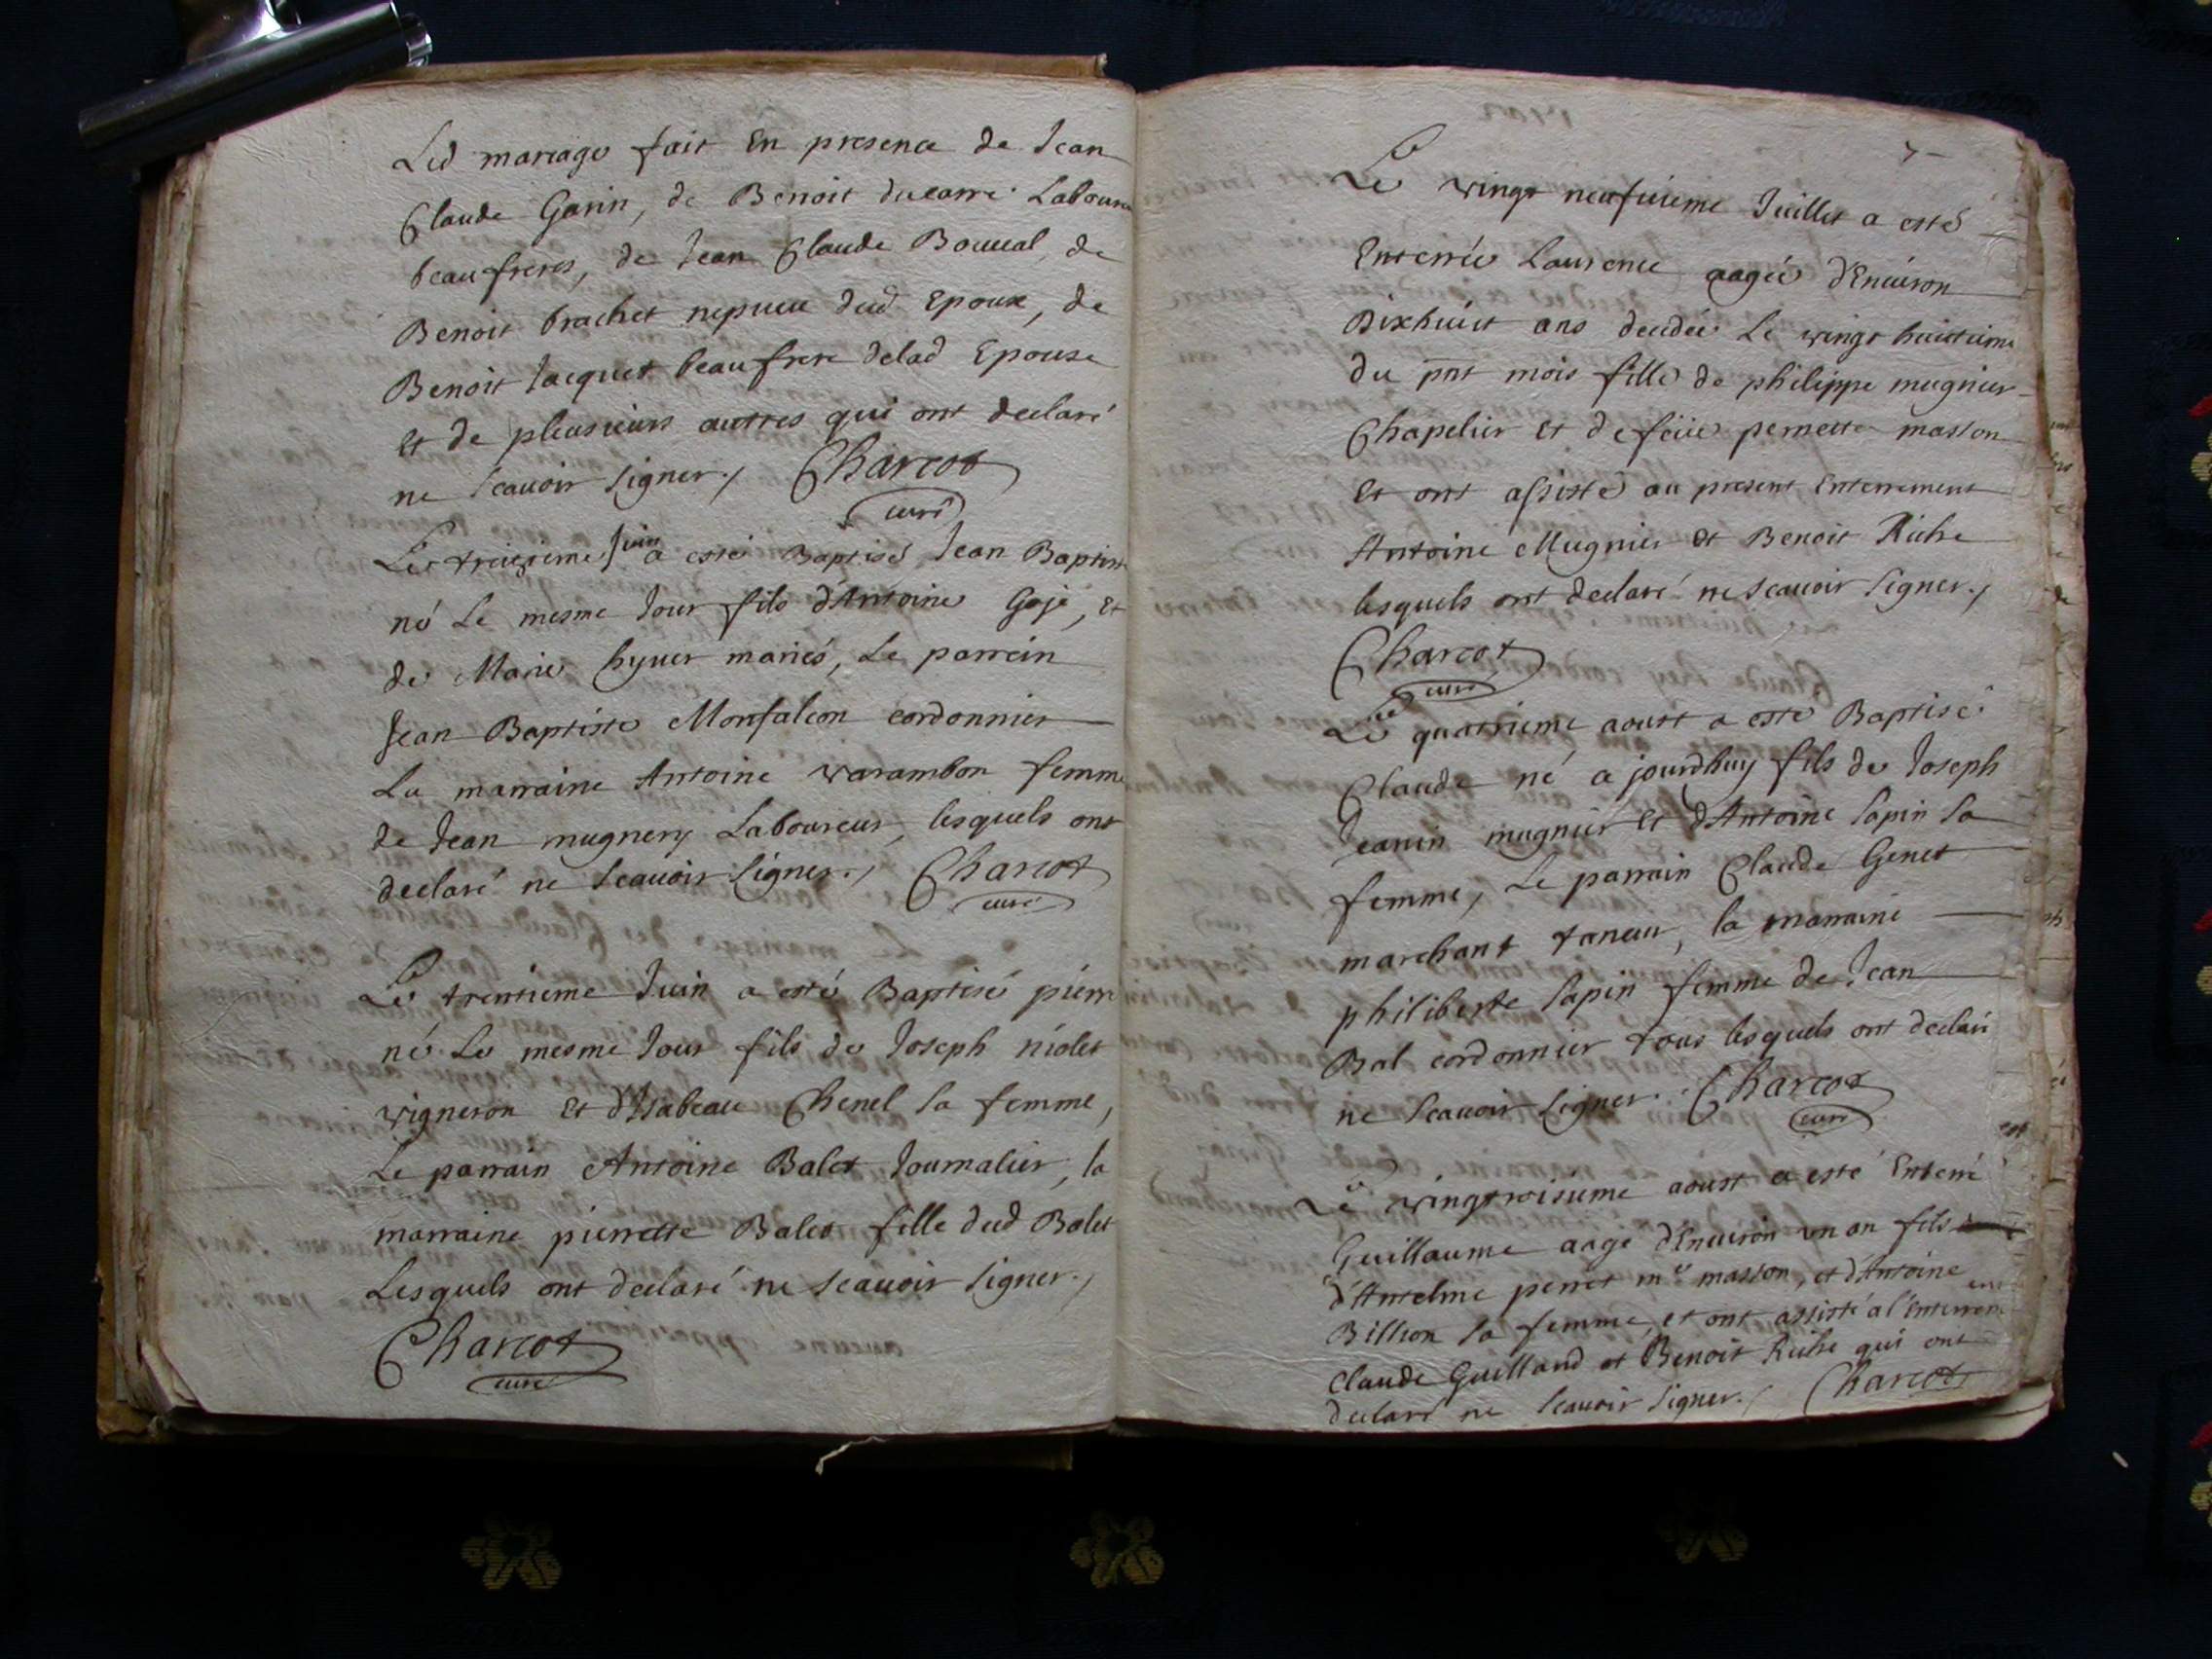 Led mariage fait En presence de Jean
Claude Garin, de Benoit ducarre Laboureu
beaufreres, de Jean Claude Bouual, de
Benoit brachet nepueu dud Epoux, de
Benoit Jacquet beaufrere delad Epouse
Et de pleusieurs autres qui ont declaré
ne Scauoir Signer./ Charcot
curé
Le treizieme Juin a esté Baptisé Jean Baptist
né Le mesme Jour fils d'Antoine Goje, Et
de Marie hyuer mariés, Le parrein
Jean Baptiste Monfalcon cordonnier
La marraine Antoine varambon femme
de Jean mugnery Laboureur, lesquels ont
declaré ne Scauoir Signer./ Charcot
curé
Le trentieme Juin a esté Baptisé pierre
né Le mesme Jour fils de Joseph niolet
vigneron Et d'Isabeau Chenel Sa femme,
Le parrain Antoine Balet Journalier, la
marraine pierrette Balet fille dud Balet
Lesquels ont declaré ne Scauoir Signer./
Charcot
curé
7
Le vingt neufuieme Juillet a esté
Enterrée Laurence aagée d'Enuiron
Dixhuict ans decedée Le vingt huictieme
du pnt mois fille de philippe mugnier
Chapelier Et defeue pernette masson
Et ont assisté au present Enterrement
Antoine Mugnier Et Benoit Riche
lesquels ont declaré ne Scauoir Signer./
Charcot
curé
Le quatrieme aoust a esté Baptisé
Claude né a jourdhuy fils de Joseph
Jeanin mugnier Et d'Antoine Sapin Sa
femme, Le parrain Claude Genet
marchant taneur, la marraine
philiberte Sapin femme de Jean
Bal cordonnier tous lesquels ont declaré
ne Scauoir Signer. Charcot
curé
Le vingtroisieme aoust a esté Enterré
Guillaume aagé d'Enuiron un an fils
d'Antelme perret me masson, et d'Antoine
Billion Sa femme, et ont assisté a l'Enterrem
ent
Claude Guilland et Benoit Riche qui ont
declaré ne Scauoir Signer./ Charcot